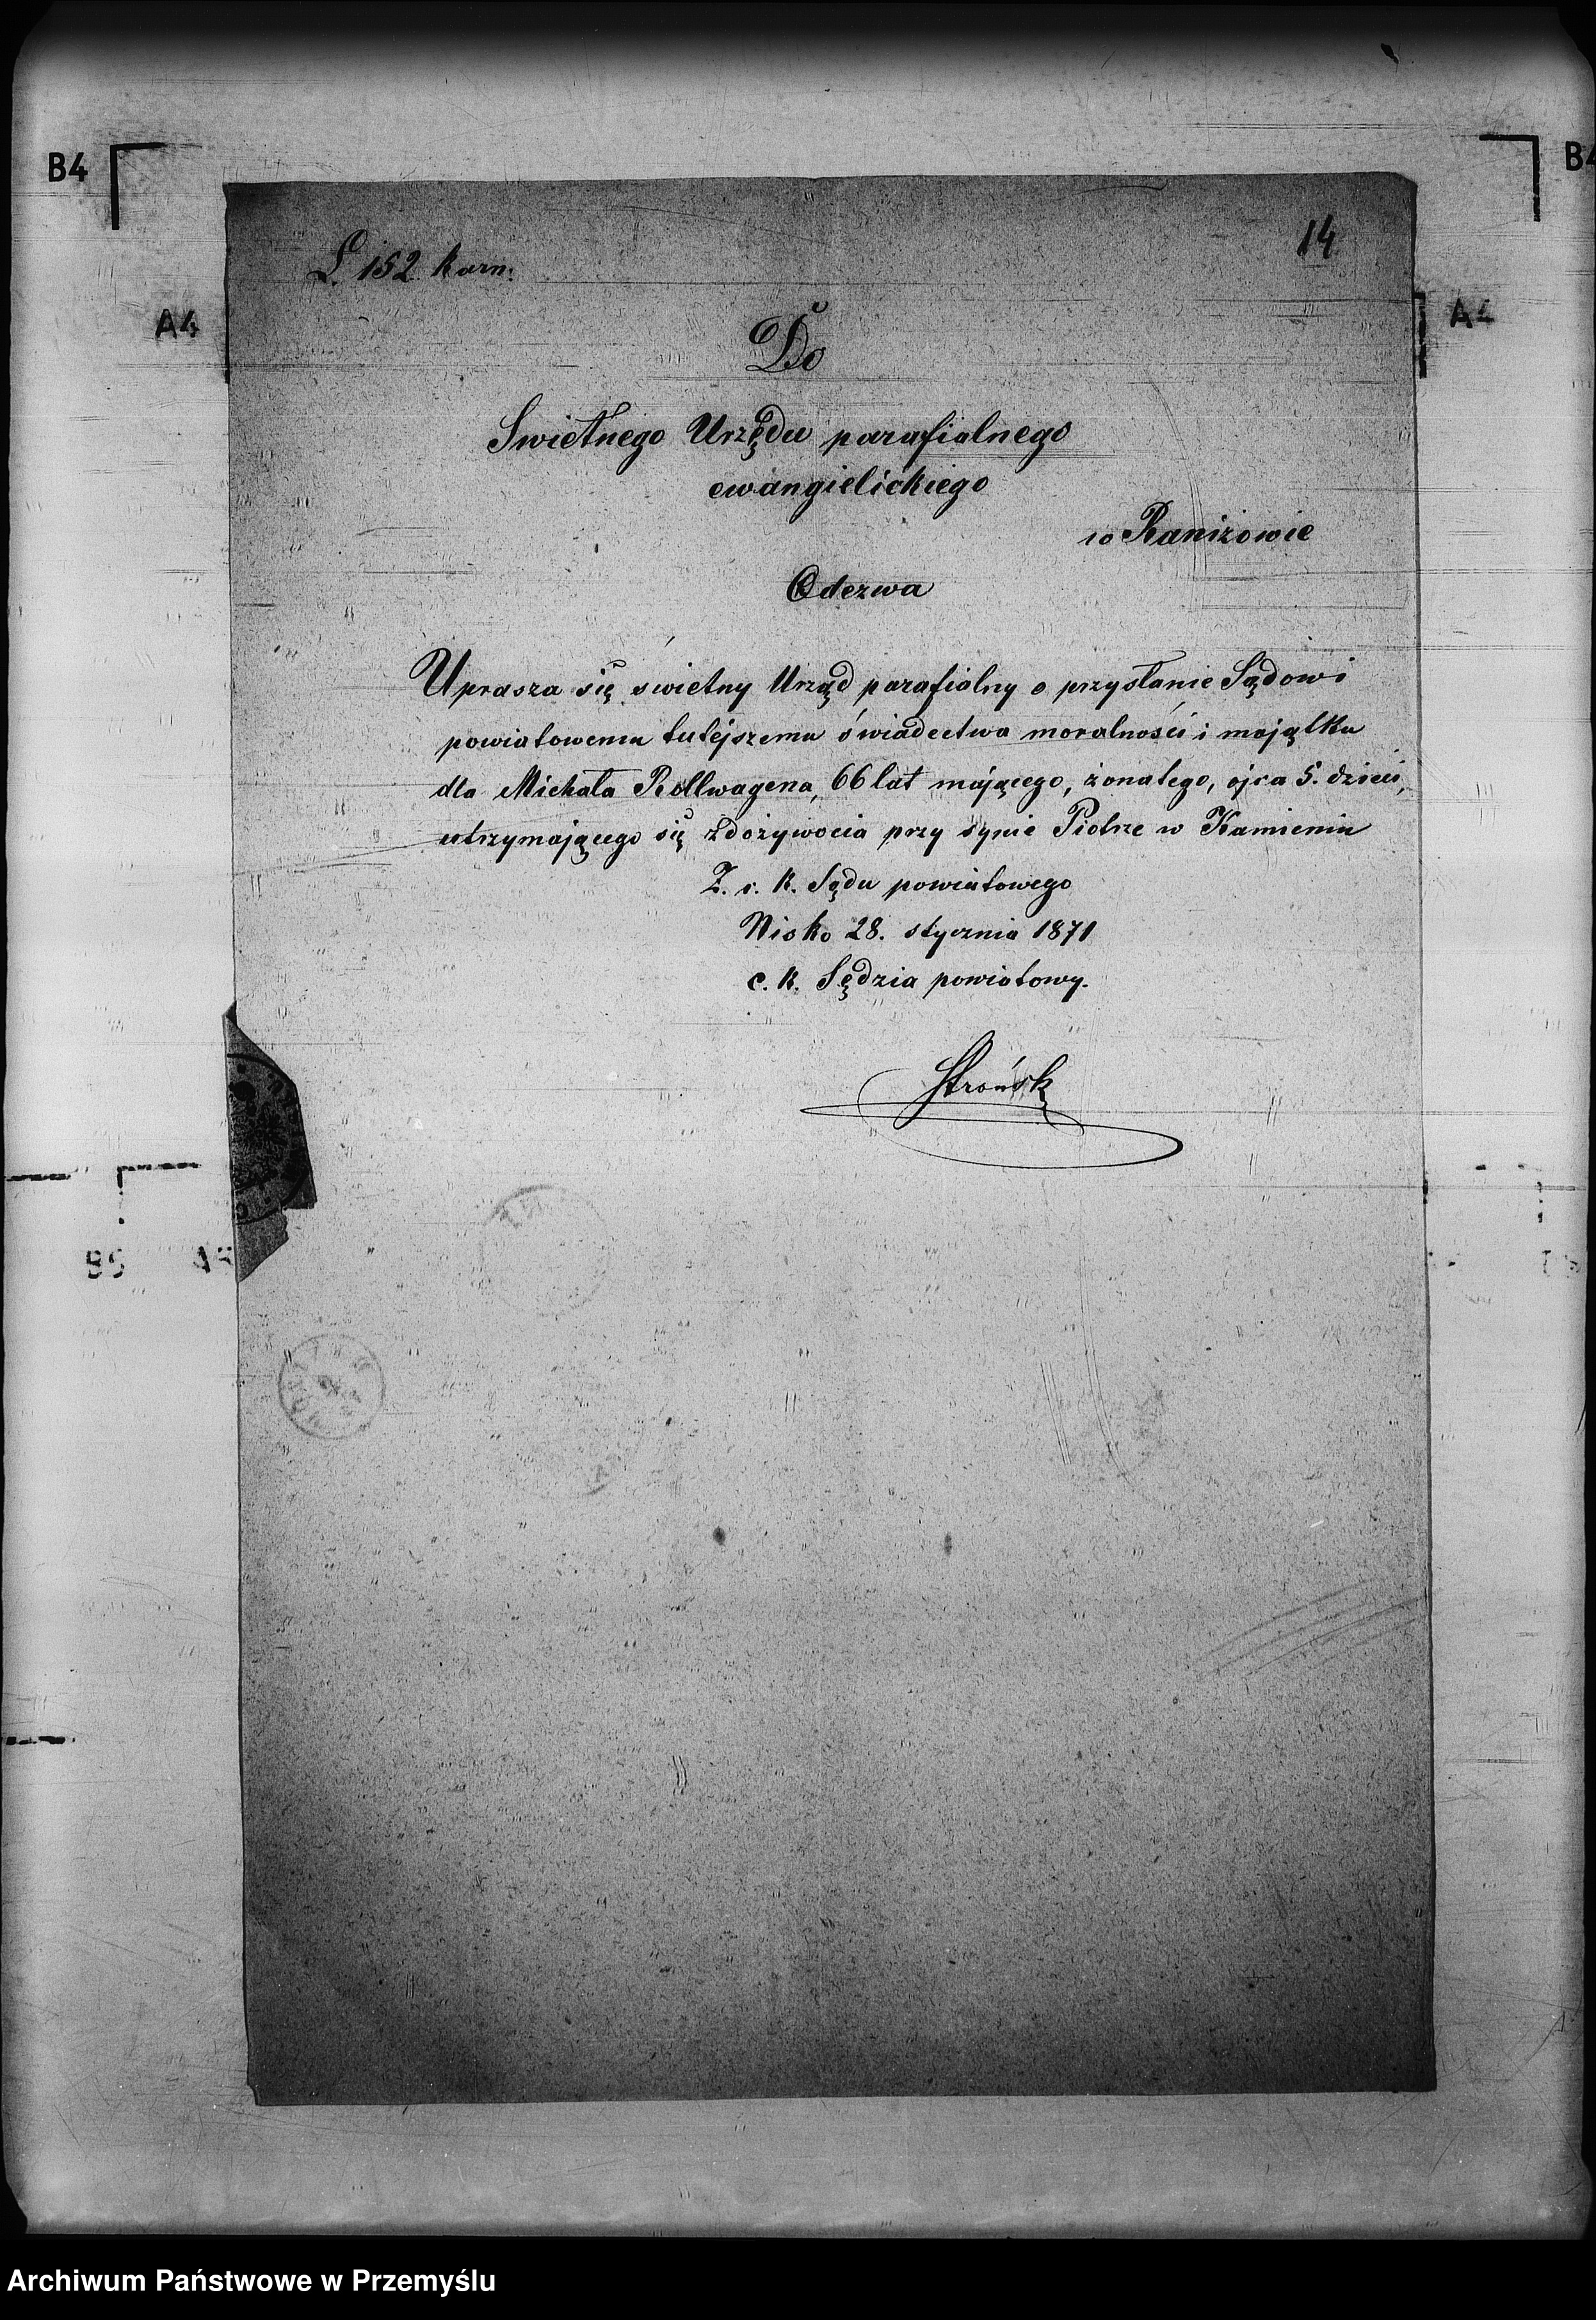 B4
B4
14
L. 152 karn.
A4
A4
Do
Swietnego Urzędu parafialnego
ewangielickiego
w Raniżowie
Odezwa
Uprasza się swietny Urząd parafialny o przysłanie Sądowi
powiatowemu tutejszemu świadectwa moralności i majątku
dla Michała Rollwagena, 66 lat mającego, żonatego, ojca 5. dzieci,
utrzymającego się z dożywocia przy synie Piotrze w Kamieniu
Z. c. k. Sądu powiatowego
Nisko 28. stycznia 1871
c. k. Sędzia powiatowy.
Strońsk
B5
Archiwum Państwowe w Przemyślu